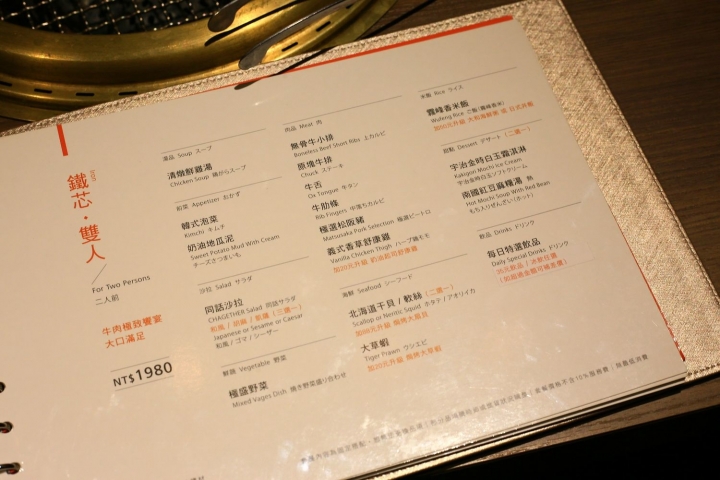 Iron
鐵芯・雙人
For Two Persons
二人前
牛肉極致饗宴
大口滿足
NT$1980
湯品 Soup スープ
清燉鮮雞湯
Chicken Soup 鶏がらスープ
前菜 Appetizer おかず
韓式泡菜
Kimchi キムチ
奶油地瓜泥
Sweet Potato Mud With Cream
チーズさつまいも
沙拉 Salad サラダ
同話沙拉
CHAGETHER Salad 同話サラダ
和風 / 胡麻 / 凱薩 (三選一)
Japanese or Sesame or Caesar
和風 / ゴマ / シーザー
鮮蔬 Vegetable 野菜
極盛野菜
Mixed Vages Dish 焼き野菜盛り合わせ
肉品 Meat 肉
無骨牛小排
Boneless Beef Short Ribs 上カルビ
原塊牛排
Chuck ステーキ
牛舌
Ox Tongue 牛タン
牛肋條
Rib Fingers 中落ちカルビ
極選松阪豬
Matsusaka Pork Selection 極選ピートロ
義式香草舒康雞
Vanilla Chicken Thigh ハーブ鶏モモ
加20元升級 奶油起司舒康雞
海鮮 Seafood シーフード
北海道干貝 / 軟絲 (二選一)
Scallop or Neritic Squid ホタテ / アオリイカ
大草蝦
Tiger Prawn ウシエビ
米飯 Rice ライス
霧峰香米飯
Wufeng Rice ご飯(霧峰香米)
甜點 Dessert デザート (二選一)
宇治金時白玉霜淇淋
Kakigori Mochi Ice Cream
宇治金時白玉ソフトクリーム
南國紅豆麻糬湯 熱
Hot Mochi Soup With Red Bean
もち入りぜんざい(ホット)
飲品 Drinks ドリンク
每日特選飲品
Daily Special Drinks ドリンク